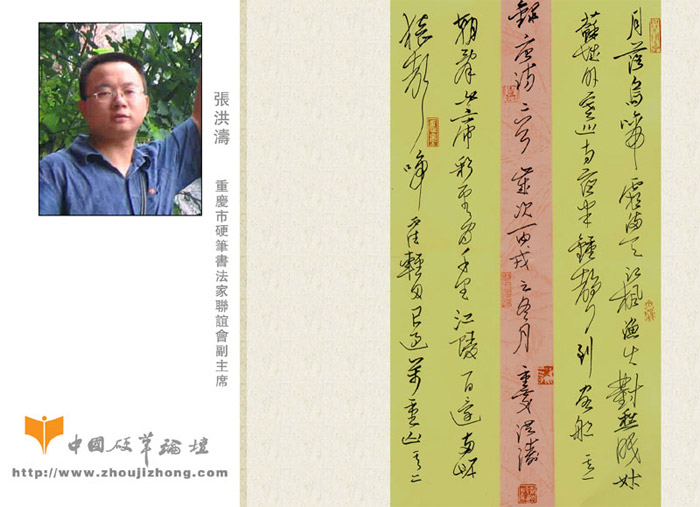 張洪濤
重慶市硬筆書法家聯誼會副主席
中國硬筆論壇
http://www.zhoujizhong.com
月落烏啼霜滿天江楓漁火對愁眠姑
蘇城外寒山寺夜半鐘聲到客船 其一
錄唐詩二首 歲次丙戌之冬月 重慶洪濤
朝辭白帝彩雲間千里江陵一日還兩岸
猿聲啼不住輕舟已過萬重山 其二